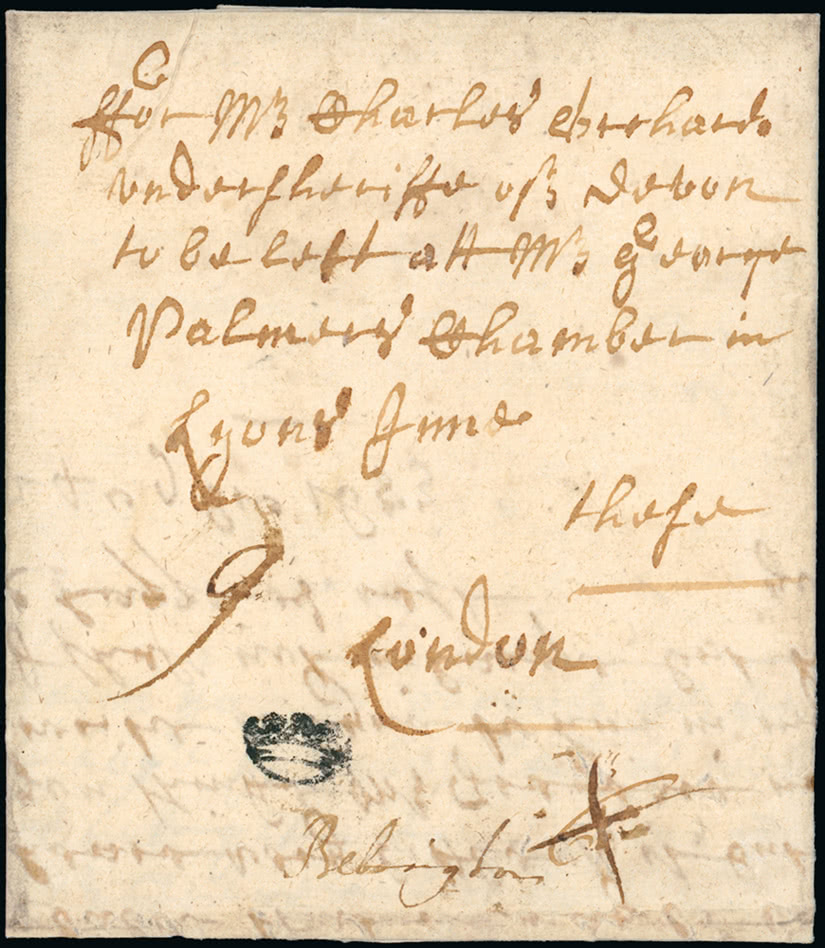 ffor Mr Charles Orchard
undersheriffe off Devon
to be left att Mr George
Palmers Chamber in
Lyons Inne
these
London